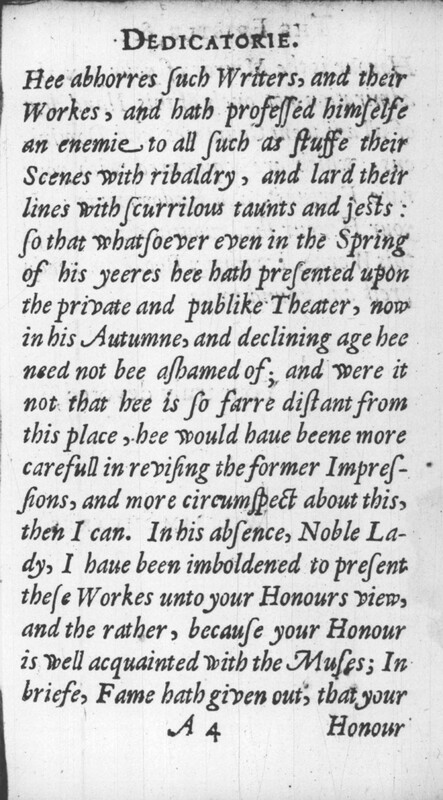 DEDICATORIE.
Hee abhorres ſuch Writers, and their
Workes, and hath profeſſed himſelfe
an enemie to all ſuch as ſtuffe their
Scenes with ribaldry, and lard their
lines with ſcurrilous taunts and jeſts:
ſo that whatſoever even in the Spring
of his yeeres hee hath preſented upon
the private and publike Theater, now
in his Autumne, and declining age hee
need not bee aſhamed of; and were it
not that hee is ſo farre diſtant from
this place, hee would haue beene more
carefull in reviſing the former Impreſ-
ſions, and more circumſpect about this,
then I can. In his abſence, Noble La-
dy, I haue been imboldened to preſent
theſe Workes unto your Honours view,
and the rather, becauſe your Honour
is well acquainted with the Muſes; In
briefe, Fame hath given out, that your
A 4 Honour